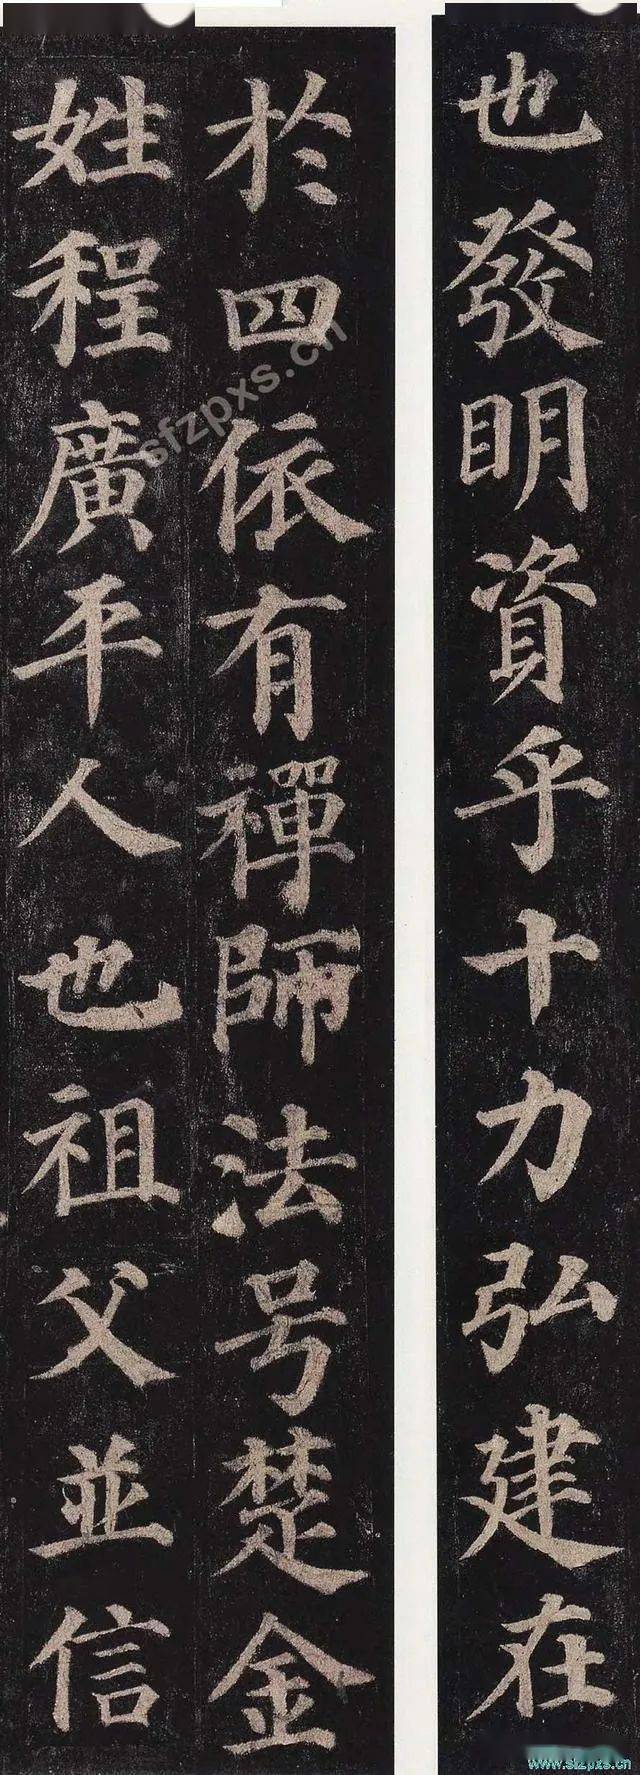 也發明資乎十力弘建在
於四依有禪師法号楚金
姓程廣平人也祖父並信
sfzpxs.cn
www.sfzpxs.cn